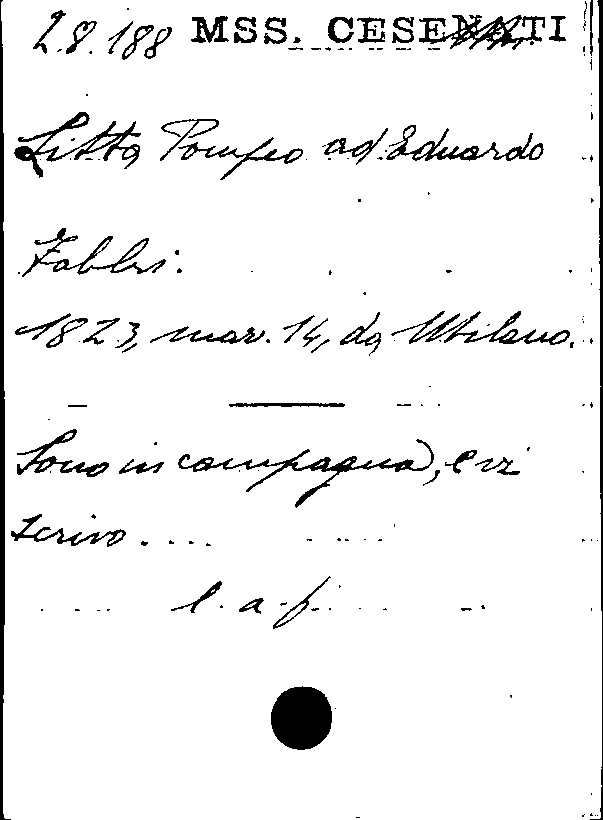 2.8.188 MSS. CESENATI
Litta Pompeo ad Eduardo
Fabbri.
1823, mar. 14, da Milano.
Sono in campagna, e vi
scrivo....
l. a. f.